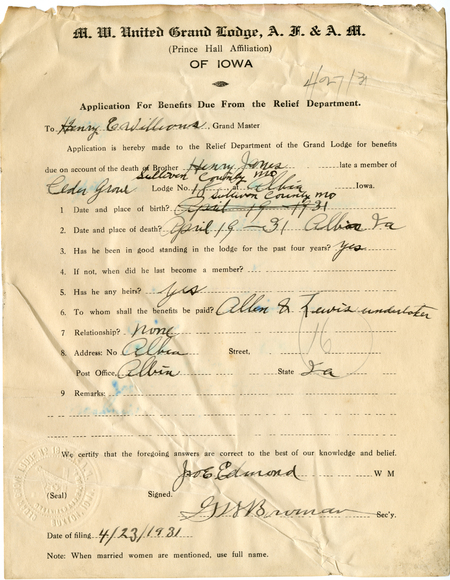 M. W. United Grand Lodge, A. F. & A. M.
(Prince Hall Affiliation)
OF IOWA
4/27/31
Application For Benefits Due From the Relief Department.
To Henry E Williams, Grand Master
Application is hereby made to the Relief Department of the Grand Lodge for benefits
due on account of the death of Brother Henry Jones late a member of
Sullivan County Mo
Ceder Grove Lodge No. 18 at Albia Iowa.
Sullivan County Mo
1 Date and place of birth? April 19 - 1931
2 Date and place of death? April 19 - 31 Albia Ia
3 Has he been in good standing in the lodge for the past four years? yes
4 If not, when did he last become a member?
5 Has he any heirs? yes
6 To whom shall the benefits be paid? Allen & Lewis undertaker
7 Relationship? none
16
8 Address: No Albia Street,
Post Office, Albia State Ia
9 Remarks:
We certify that the foregoing answers are correct to the best of our knowledge and belief.
Edmond W M
(Seal) Signed.
Sec'y.
Date of filing 4/23/1931
Note: When married women are mentioned, use full name.